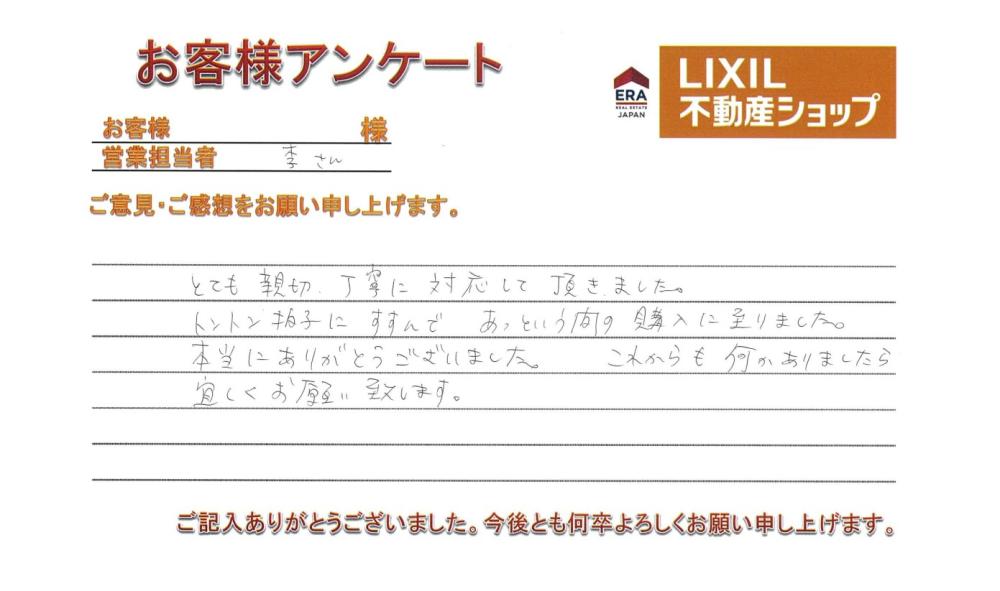 お客様アンケート
ERA
REAL ESTATE
JAPAN
LIXIL
不動産ショップ
お客様 様
営業担当者 李さん
ご意見・ご感想をお願い申し上げます。
とても親切、丁寧に対応して頂きました。
トントン拍子にすすんで あっという間の購入に至りました。
本当にありがとうございました。 これからも何かありましたら
宜しくお願い致します。
ご記入ありがとうございました。今後とも何卒よろしくお願い申し上げます。